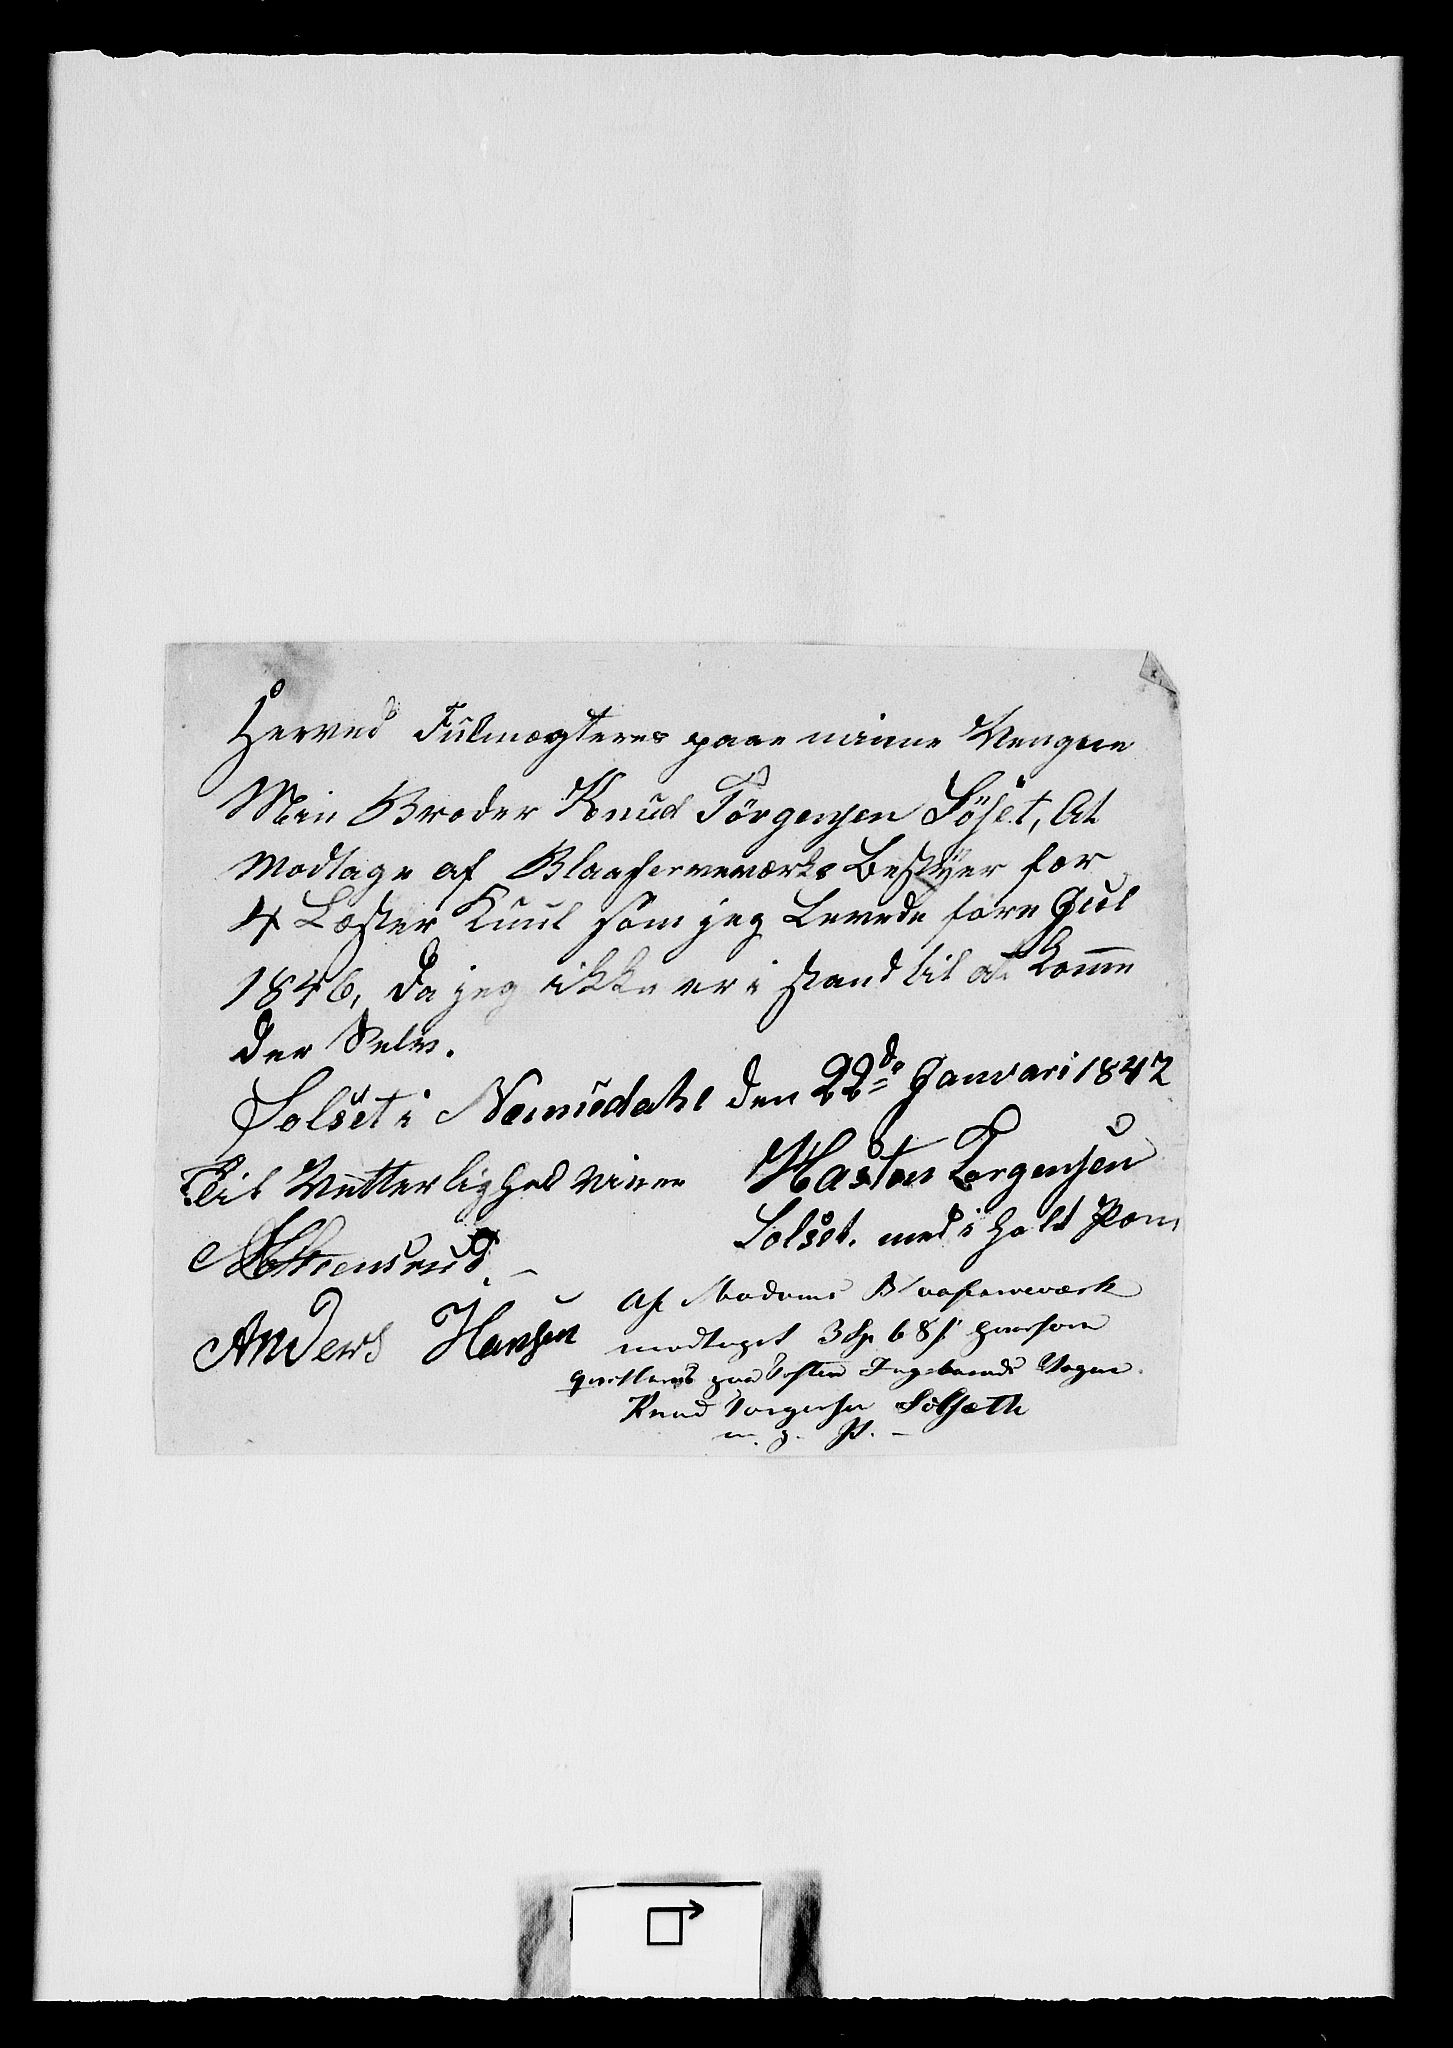 Herved Fülmægteres paae minne Vengne
Min Broder Knud Törgensen Söset, At
Modtage af Blaafarveværks Bestÿer for
4 Læster Kuul som jeg Levede fore Jul
1846, da jeg ikke er i stand til at komme
der Selv.
Solset i Nomedahl den 22de Janvari 1847
Til Vitterlighed Vinne Hasten Torgensen
Solset. med i holt Pæn
Anders Hansen
Af Modums Blaafarveværk
modtaget 3 Sp 68 s hvorfor
qvitteres paa Vegne
Knud Torgensen Solsæth
m. p. P.